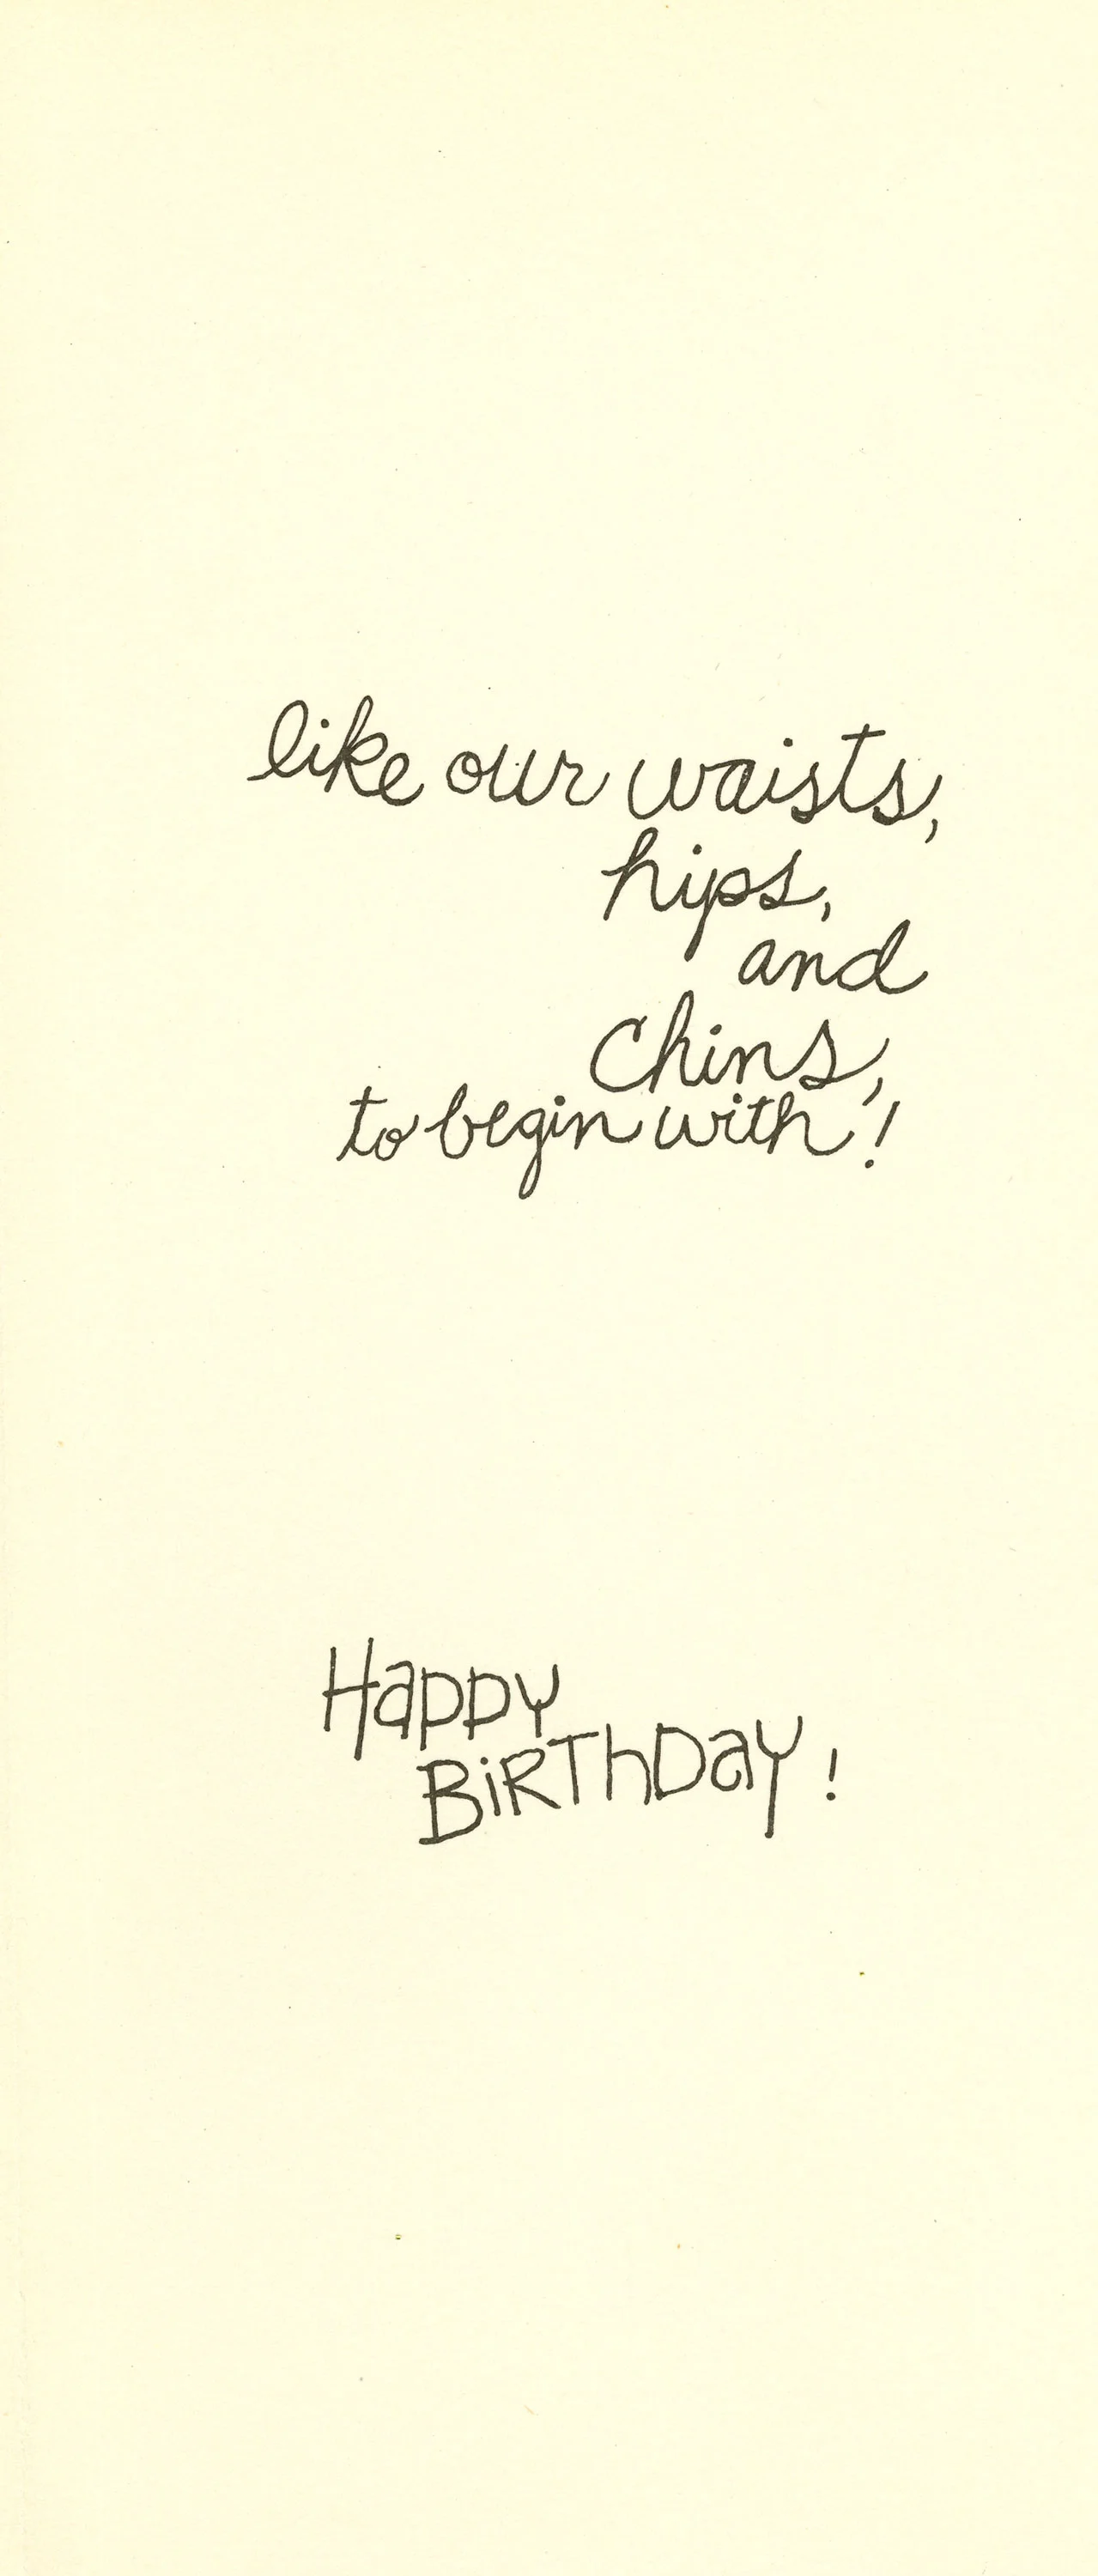 like our waists,
hips,
and
chins,
to begin with!
Happy
BiRThDay!